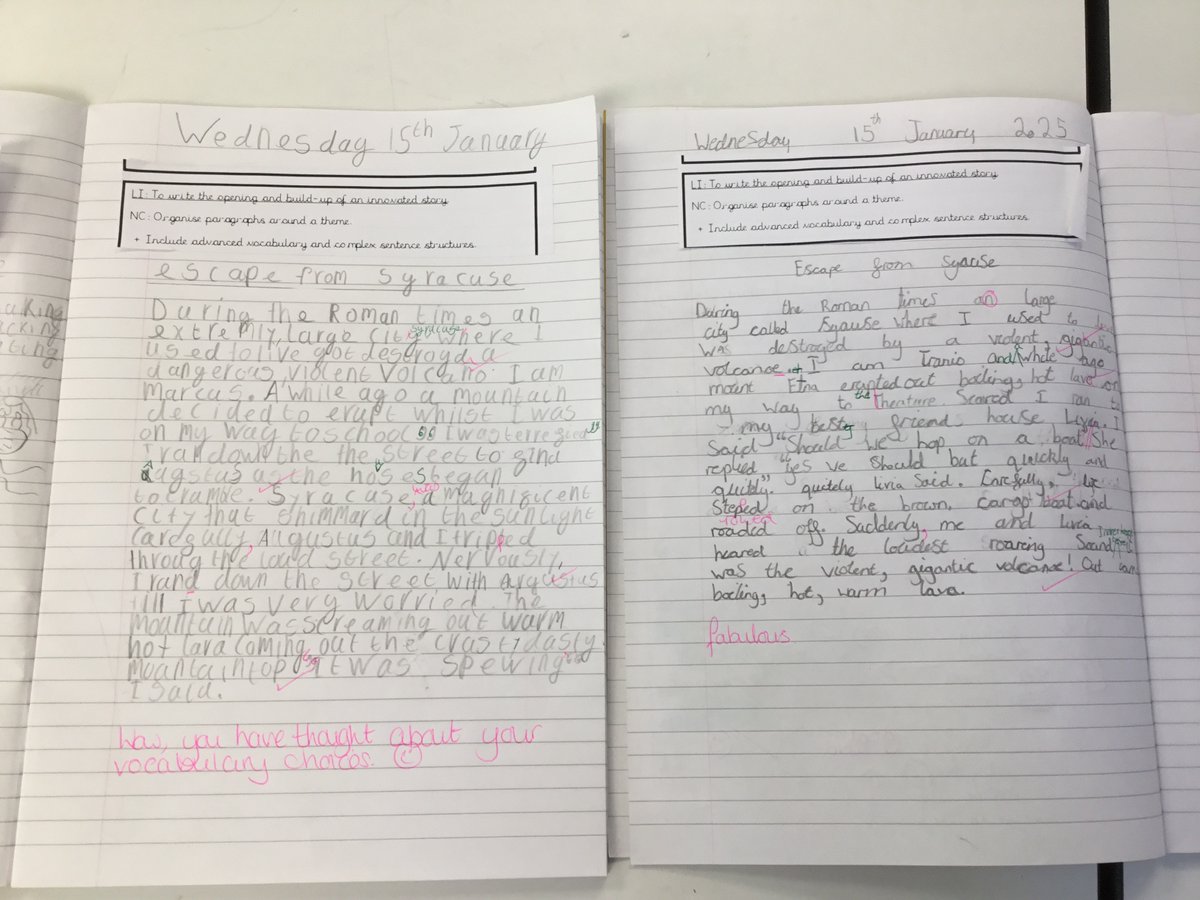 Wednesday 15th January
LI: To write the opening and build-up of an innovated story
NC: Organise paragraphs around a theme.
+ Include advanced vocabulary and complex sentence structures.
escape from syracuse
During the Roman times an
extremly, large city syracuse where I
used to live got destroyd, a
dangerous, violent volcano. I am
Marcus. A while ago a mountain
decided to erupt whilst I was
on my way to school so I was terregied
I ran down the the street to gind
Agustus as the hoses began
to cramble. Syracase, a magnigicent
city that shimmard in the sunlight
Caregully, Augustus and I tripped
throug the loud street. Nervously,
I rand down the street with Augustus
till I was very worried. The
mountain was screaming out warm
hot lara coming out the crasty dasty
mountain top it was spewing
I said.
Wow, you have thought about your
vocabulary choices.
Wednesday 15th January 2025
LI: To write the opening and build-up of an innovated story
NC: Organise paragraphs around a theme.
+ Include advanced vocabulary and complex sentence structures.
Escape from Syause
Dairing the Roman times an large
city called Syause where I used to
was destroyed by a violent, gigantic
volcanoe. I am Tranio and while ago
mount Etna erupted out boiling, hot lave on
my way to the Theature. Scared I ran to
my best friends house Livia. I
Said "Should we hop on a boat" She
replied "yes we should but quickly and
quitly." quitely livia Said. Carefully, we
Steped on the brown, cargo boat and
roaded off. Suddenly, me and livia
heared the loudest roaring Sound
was the violent, gigantic volcanoe! Out came
boiling, hot, warm lava.
fabulous.